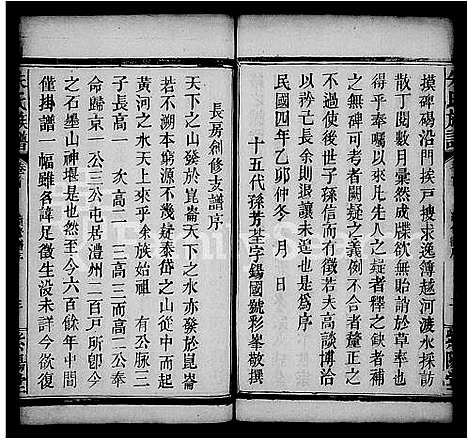 摸碑碣沿門挨戶搜求逸簿越河渡水採訪
散丁閱數月方具牒欲無貽誚於草率也
得乎奉囑以來凡先人之疑者釋缺者補
之無硏可考者闕疑之義例不合者釐正之
不過使後世子孫信而有徵若夫高談博洽
以矜己長余則退讓未遑也是爲序
民國四年乙卯仲冬月 日
十五代孫芳荃字錫國號彩峯敬撰
長房創修支譜序
天下之山發於崑崙天下之水亦發於崑崙
不溯本窮源不幾疑泰岱之山從中而起
黃河之水天上來乎余族始祖 有公脉三
子長高一 次高二 三高三而高二公奉
命歸京一公三公屯居澧州二百戶所卽今
之石墨山神堰是也於今六百餘年中間
僅掛譜一幅雖名諱足徵生沒未詳今欲復
朱氏族譜